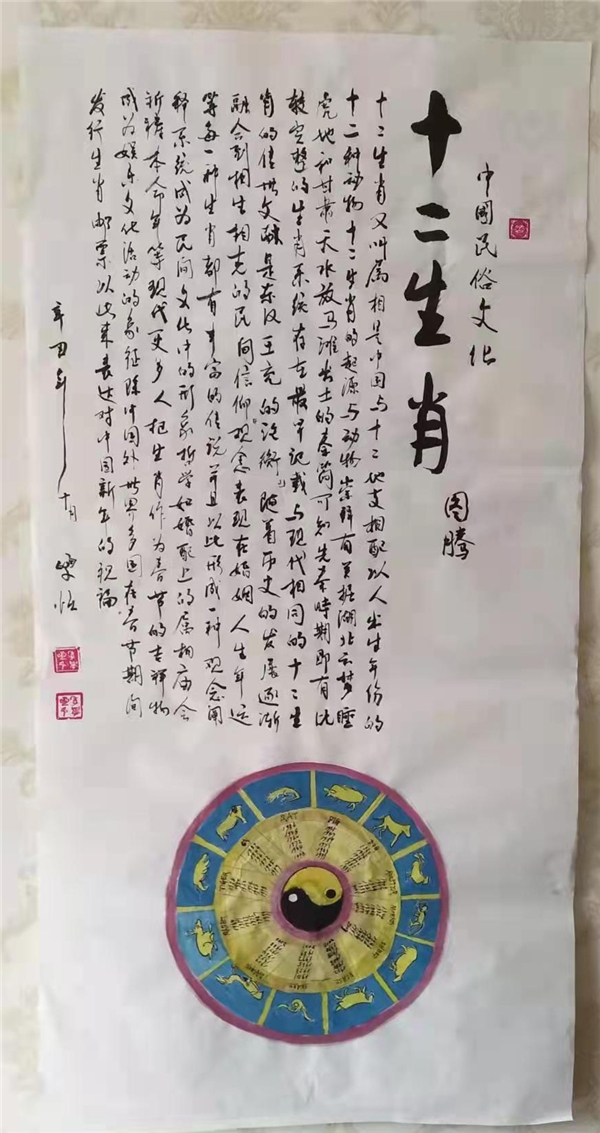 中國民俗文化
十二生肖
图腾
十二生肖又叫属相是中国与十二地支相配以人出生年份的
十二种动物十二生肖的起源与动物崇拜有关据湖北云梦睡
虎地和甘肃天水放马滩出土的秦简可知先秦時期即有比
较完整的生肖系统存在最早记载与现代相同的十二生
肖的传世文献是东汉王充的《论衡》随着历史的发展逐渐
融合到相生相克的民间信仰观念表现在婚姻人生年运
等每一种生肖都有丰富的传说并且以此形成一种观念阐
释系统成为民间文化中的形象哲学如婚配上的属相庙会
祈祷本命年等现代更多人把生肖作为春节的吉祥物
成为娱乐文化活动的象征除中国外世界多国在春节期间
发行生肖邮票以此来表达对中国新年的祝福
辛丑年十月
RAT